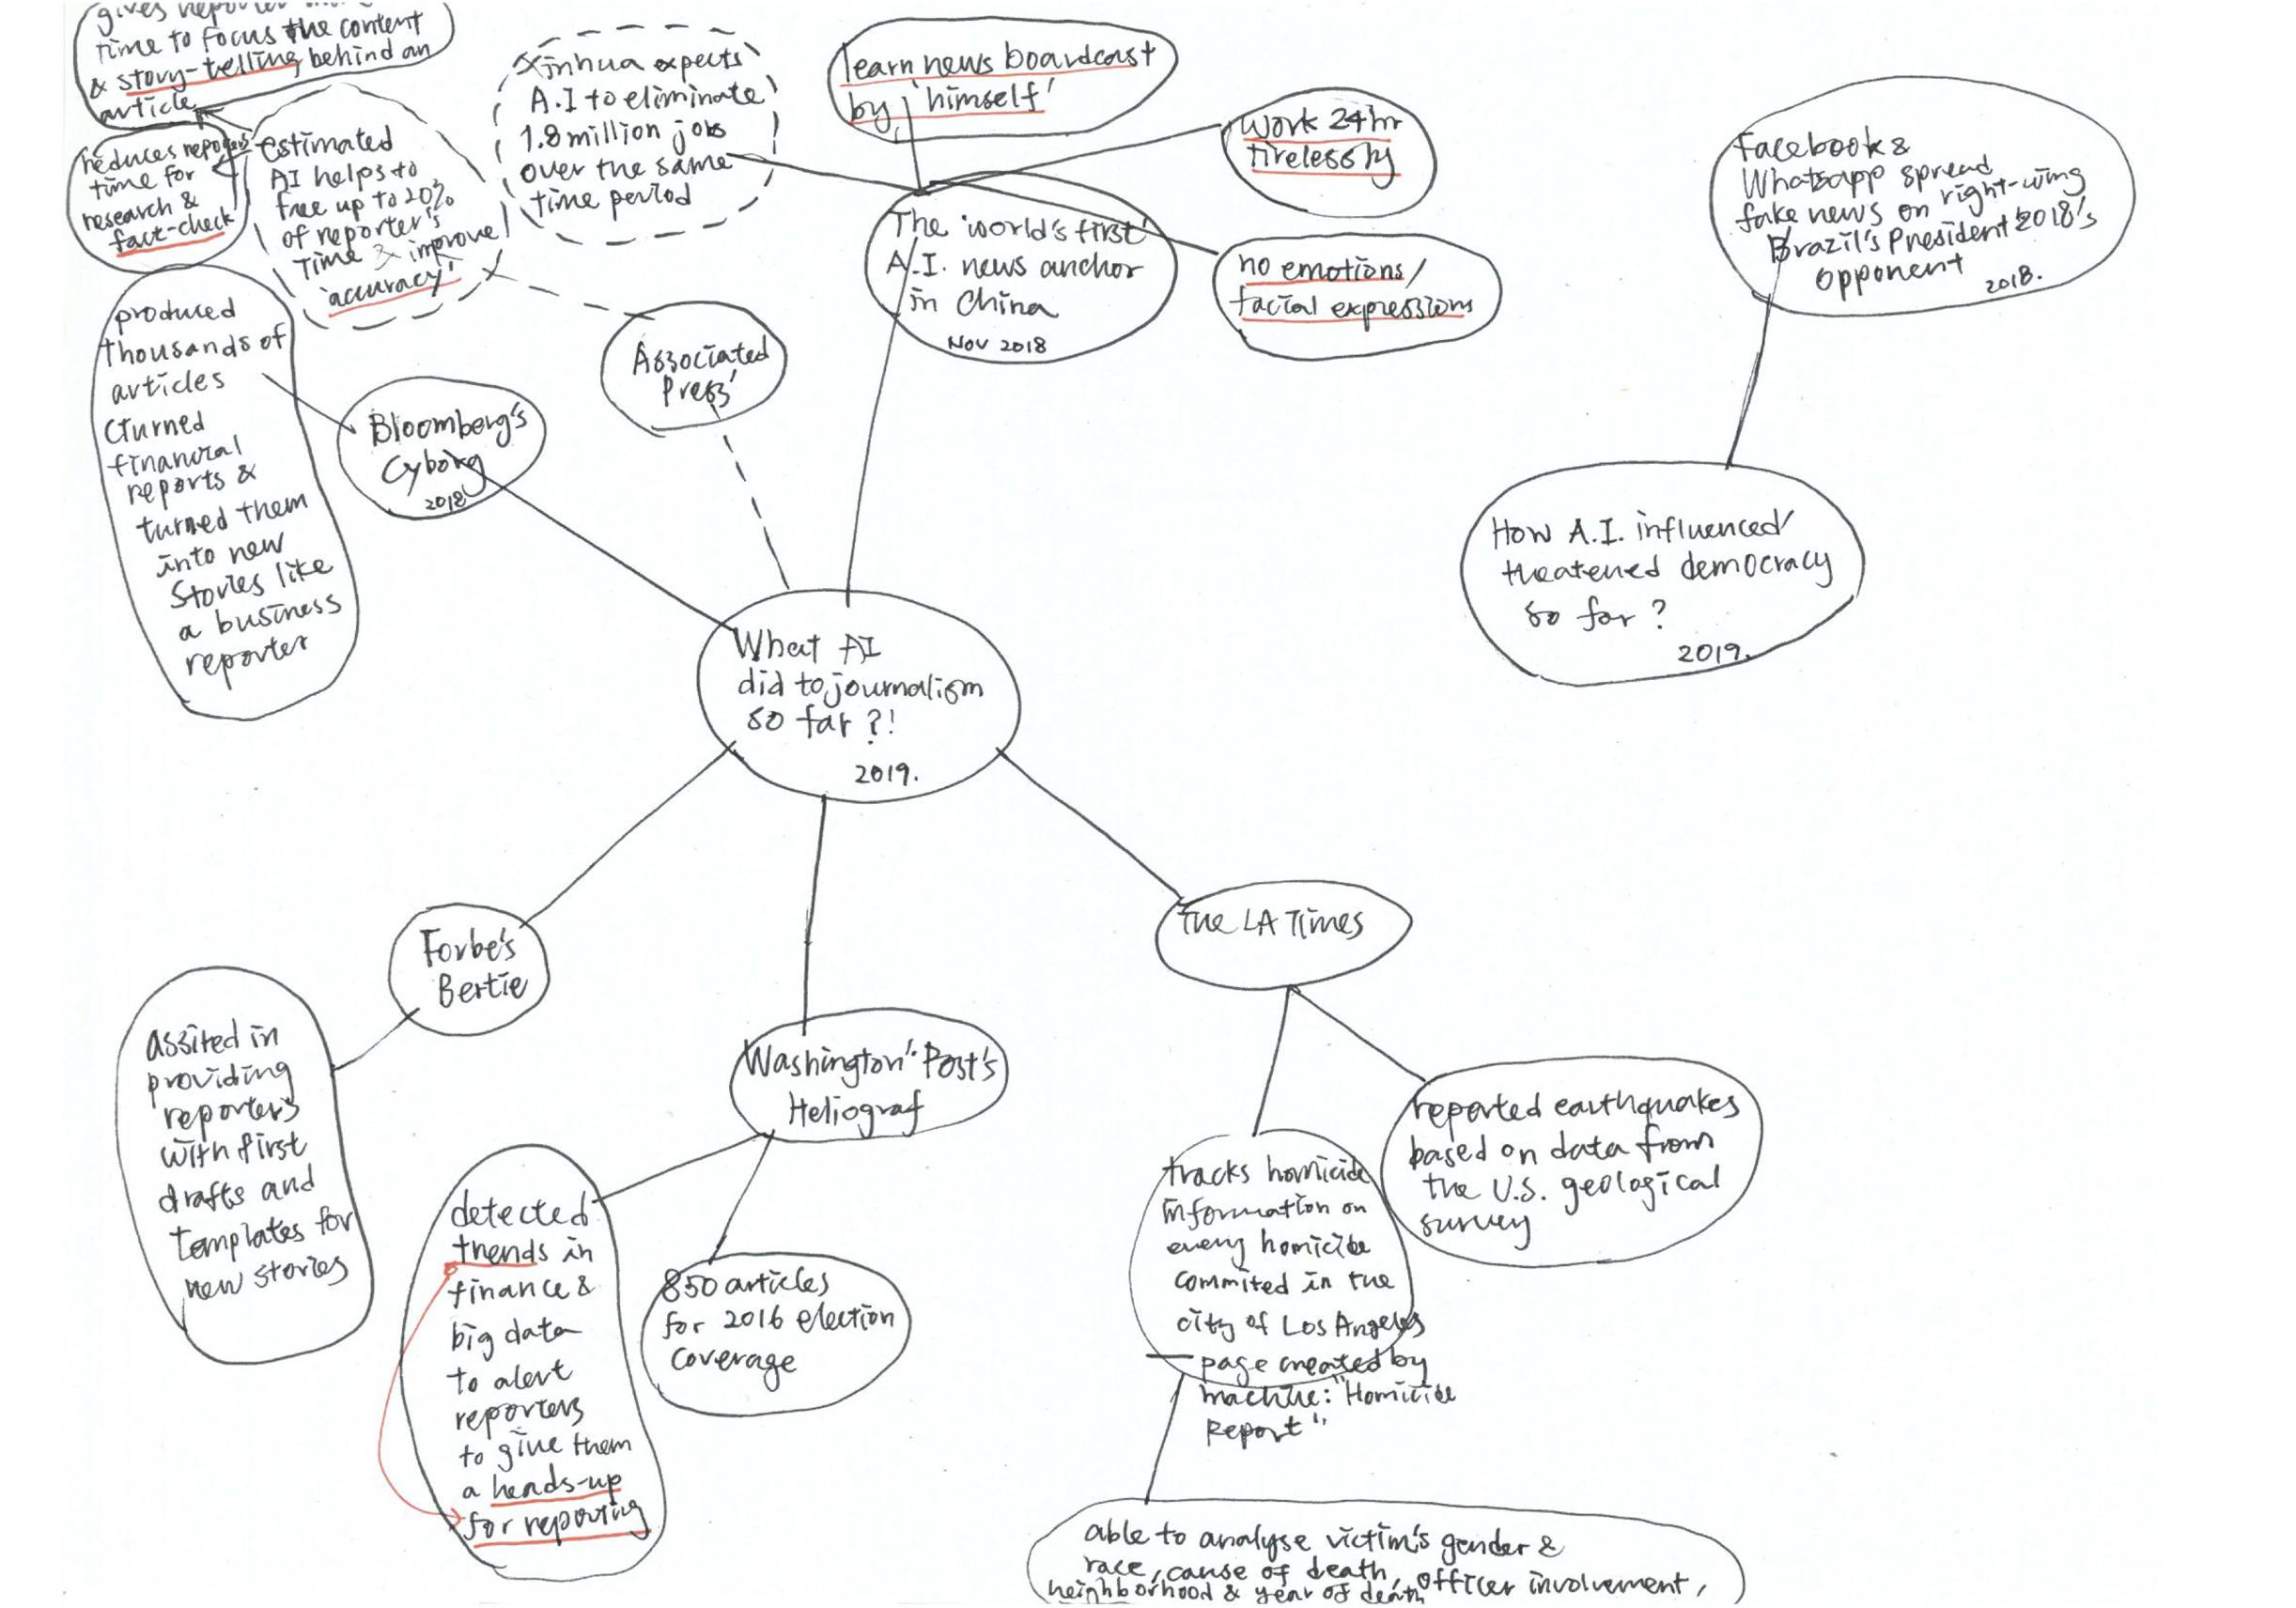 gives reporter more
time to focus the content
& story-telling behind an
article
reduces reporters'
time for
research &
fact-check
estimated
AI helps to
free up to 20%
of reporter's
time & improve
'accuracy'
Xinhua expects
A.I to eliminate
1.8 million jobs
over the same
time period
learn news boardcast
by 'himself'
Work 24hr
tirelessly
The 'world's first'
A.I. news anchor
in China
Nov 2018
no emotions/
facial expressions
Facebook &
Whatsapp spread
fake news on right-wing
Brazil's President 2018's
opponent
2018.
produced
thousands of
articles
(turned
financial
reports &
turned them
into new
stories like
a business
reporter
Bloomberg's
Cyborg
2018
Associated
Press'
How A.I. influenced/
theatened democracy
so far?
2019.
What AI
did to journalism
so far?!
2019.
Forbe's
Bertie
assited in
providing
reporters
with first
drafts and
templates for
new stories
Washington' Post's
Heliograf
detected
trends in
finance &
big data
to alert
reporters
to give them
a heads-up
for reporting
850 articles
for 2016 election
coverage
The LA Times
tracks homicide
information on
every homicide
commited in the
city of Los Angeles
— page created by
machine: "Homicide
Report"
reported earthquakes
based on data from
the U.S. geological
survey
able to analyse victim's gender &
race, cause of death, officer involvement,
neighborhood & year of death